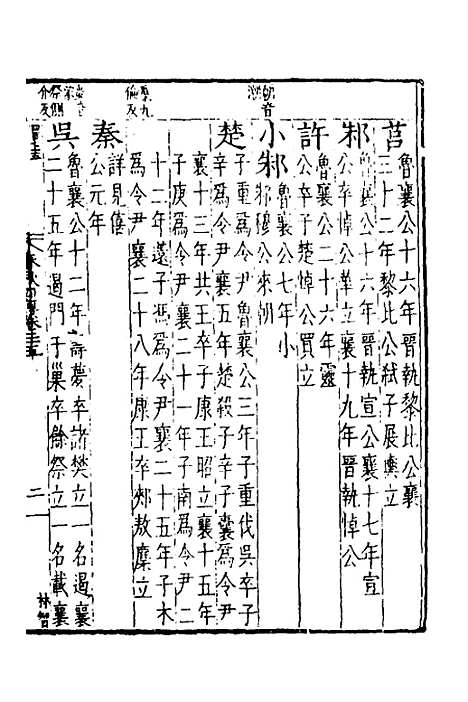 莒
魯襄公十六年晉執黎比公襄
三十二年黎比公弒子展輿立
邾
魯襄公十六年晉執宣公襄十七年宣
公卒悼公華立襄十九年晉執悼公
許
魯襄公二十六年靈
公卒子楚悼公買立
小邾
魯襄公七年小
邾穆公來朝
楚
子重爲令尹魯襄公三年子重伐吳卒子
辛爲令尹襄五年楚殺子辛子囊爲令尹
襄十三年共王卒子康王昭立襄十五年
子庚爲令尹襄二十一年子南爲令尹二
十二年薳子馮爲令尹襄二十五年子木
爲令尹襄二十八年康王卒郟敖麇立
秦
詳見僖
公元年
吳
魯襄公十二年壽夢卒諸樊立一名遏襄
二十五年遏門于巢卒餘祭立一名戴襄
二
林智